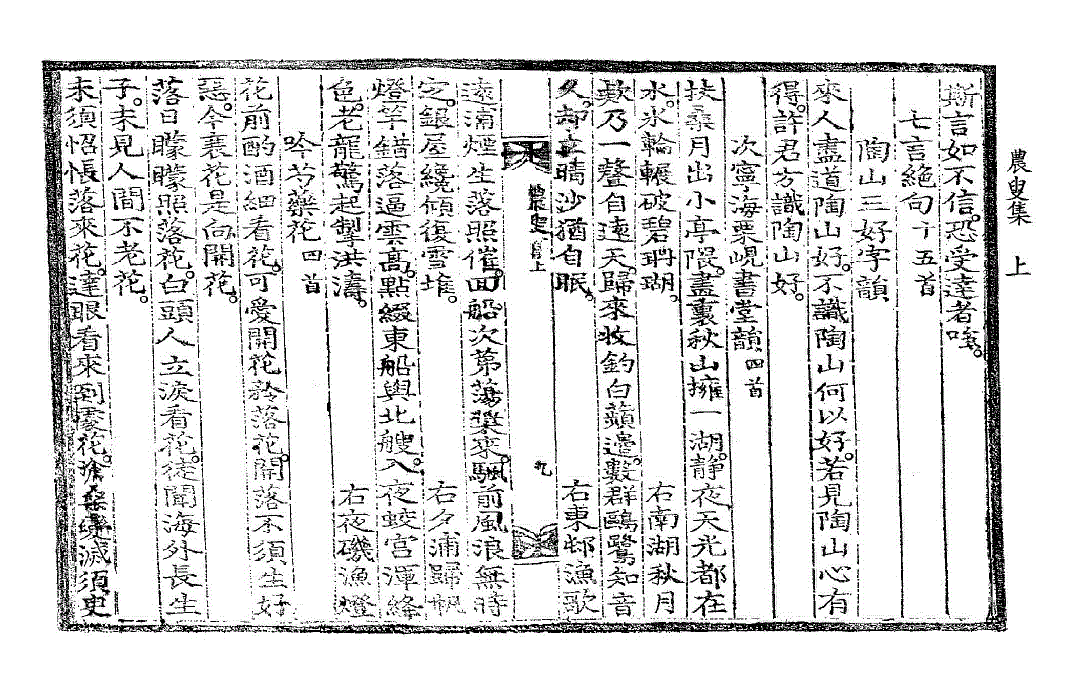 農叟集 上
斯言如不信。恐受達者嗤。
七言絶句十五首
陶山三好字韻
來人盡道陶山好。不識陶山何以好。若見陶山心有
得。許君方識陶山好。
次寧海栗峴書堂韻四首
扶桑月出小亭隈。盡裏秋山擁一湖。靜夜天光都在
水。氷輪輾破碧珊瑚。 右南湖秋月
欸乃一聲自遠天。歸來收釣白蘋邊。數群鷗鷺知音
久。却喜晴沙猶自眠。 右東邨漁歌
農叟集上 九
遠浦煙生落照催。回船次第蕩槳來。颿前風浪無時
定。銀屋纔傾復雪堆。 右夕浦歸帆
燈竿錯落逼雲高。點綴東船與北艘。入夜蛟宮渾絳
色。老龍驚起掣洪濤。 右夜磯漁燈
吟芍藥花四首
花前酌酒細看花。可愛開花矜落花。開落不須生好
惡。今衰花是向開花。
落日曚曚照落花。白頭人立淚看花。徒聞海外長生
子。未見人間不老花。
未須怊悵落來花。達眼看來到處花。滄桑變滅須臾